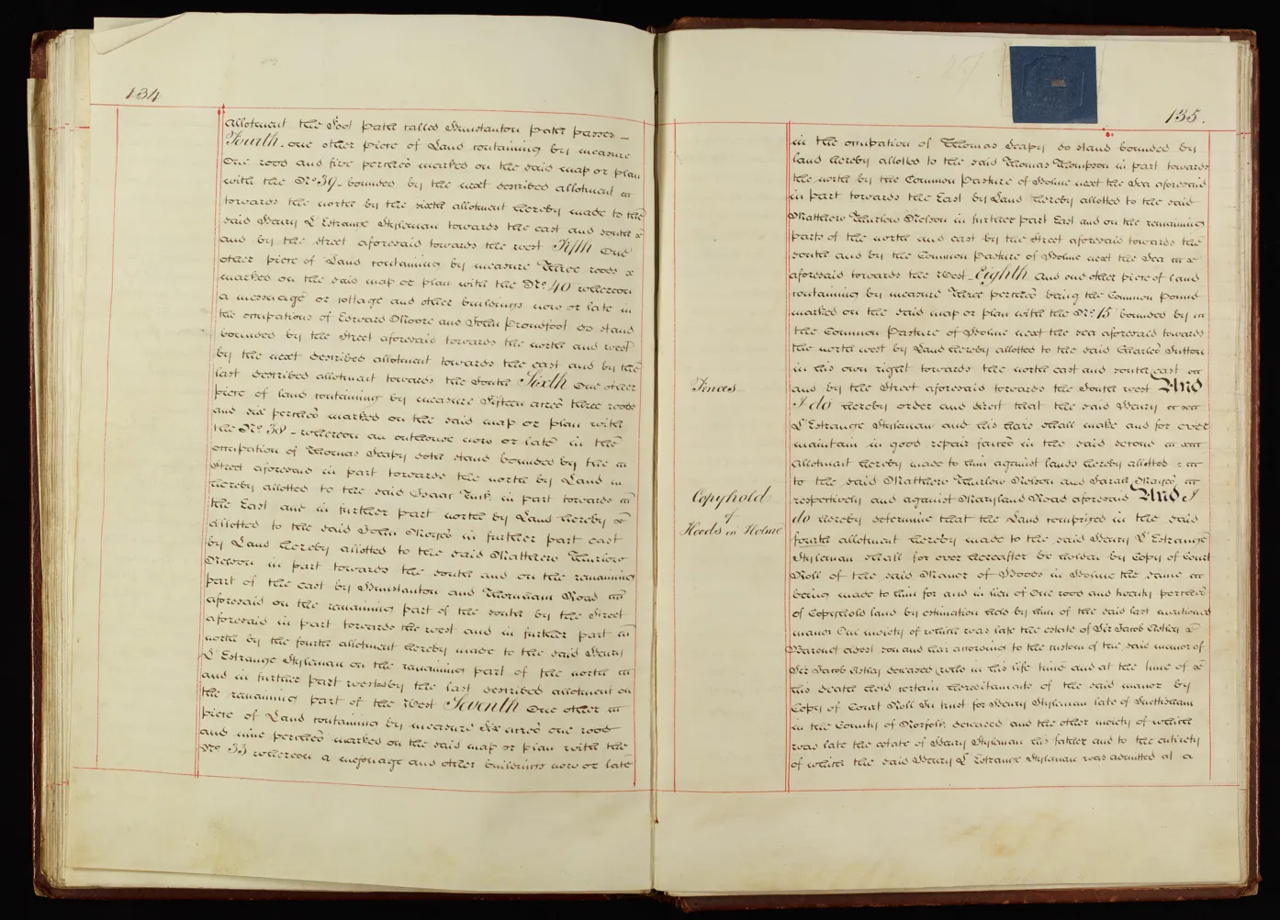 134
allotment the Foot path called Hunstanton path passes
Fourth one other piece of Land containing by measure
One rood and five perches marked on the said map or plan
with the No 39 bounded by the next described allotment
towards the north by the sixth allotment hereby made to the
said Henry L'Estrange Styleman towards the east and south &
and by the street aforesaid towards the west Fifth One
other piece of Land containing by measure Three roods &
marked on the said map or plan with the No 40 whereon
a messuage or cottage and other buildings now or late in
the occupations of Edward Moore and John Proudfoot do stand
bounded by the Street aforesaid towards the north and west
by the next described allotment towards the east and by the
last described allotment towards the South Sixth One other
piece of land containing by measure Fifteen acres three roods
and six perches marked on the said map or plan with
the No 38 whereon an outhouse now or late in the
occupation of Thomas Leapy doth stand bounded by the
Street aforesaid in part towards the north by Land
hereby allotted to the said Isaac in part towards
the East and in further part north by Land hereby &
allotted to the said John in further part east
by Land hereby allotted to the said Matthew Thurlow
Nelson in part towards the south and on the remaining
part of the east by Hunstanton and Thornham Road
aforesaid on the remaining part of the south by the Street
aforesaid in part towards the west and in further part
north by the fourth allotment hereby made to the said Henry
L'Estrange Styleman on the remaining part of the north
and in further part west by the last described allotment on
the remaining part of the West Seventh One other
piece of Land containing by measure Six acres one rood
and nine perches marked on the said map or plan with the
No 33 whereon a messuage and other buildings now or late
135.
in the occupation of Thomas Leapy do stand bounded by
land hereby allotted to the said Thomas Thompson in part towards
the north by the Common Pasture of Holme next the Sea aforesaid
in part towards the East by Land hereby allotted to the said
Matthew Thurlow Nelson in further part East and on the remaining
parts of the north and east by the Street aforesaid towards the
south and by the Common Pasture of Holme next the Sea
aforesaid towards the West Eighth And one other piece of land
containing by measure Three perches being the Common Pound
marked on the said map or plan with the No 15 bounded by
the Common Pasture of Holme next the sea aforesaid towards
the north west by Land hereby allotted to the said Charles Sutton
in his own right towards the north east and south east
and by the Street aforesaid towards the South west And
Fences
I do hereby order and direct that the said Henry
L'Estrange Styleman and his heirs shall make and for ever
maintain in good repair fences in the said second
allotment hereby made to him against lands hereby allotted
to the said Matthew Thurlow Nelson and Sarah
respectively and against Maryland Road aforesaid And I
Copyhold
of
Hoods in Holme
do hereby determine that the Land comprized in the said
fourth allotment hereby made to the said Henry L'Estrange
Styleman shall for ever hereafter be holden by Copy of Court
Roll of the said Manor of Hoods in Holme the same
being made to him for and in lieu of One rood and twenty perches
of Copyhold land by estimation held by him of the said last mentioned
manor One moiety of which was late the estate of Sir Jacob Astley
Baronet eldest son and heir according to the custom of the said manor of
Sir Jacob Astley deceased who in his life time and at the time of
his death held certain hereditaments of the said manor by
Copy of Court Roll In trust for Henry Styleman late of Snettisham
in the County of Norfolk deceased and the other moiety of which
was late the estate of Henry Styleman his father and to the entirety
of which the said Henry L'Estrange Styleman was admitted at a